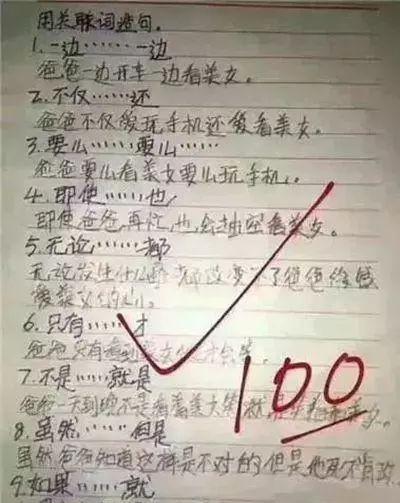 用关联词造句.
1.一边……一边
爸爸一边开车一边看美女。
2.不仅……还
爸爸不仅爱玩手机还爱看美女。
3.要么……要么……
爸爸要么看美女要么玩手机。
4.即使……也
即使爸爸再忙,也会抽空看美女。
5.无论……都
无论发生什么 都改变不了爸爸
爱美女的心。
6.只有……才
爸爸只有看到美女 才会笑。
7.不是……就是
爸爸一天到晚不是看着美女笑就是 美女。
8.虽然……但是
虽然爸爸知道这样是不对的但是他
9.如果……就
100